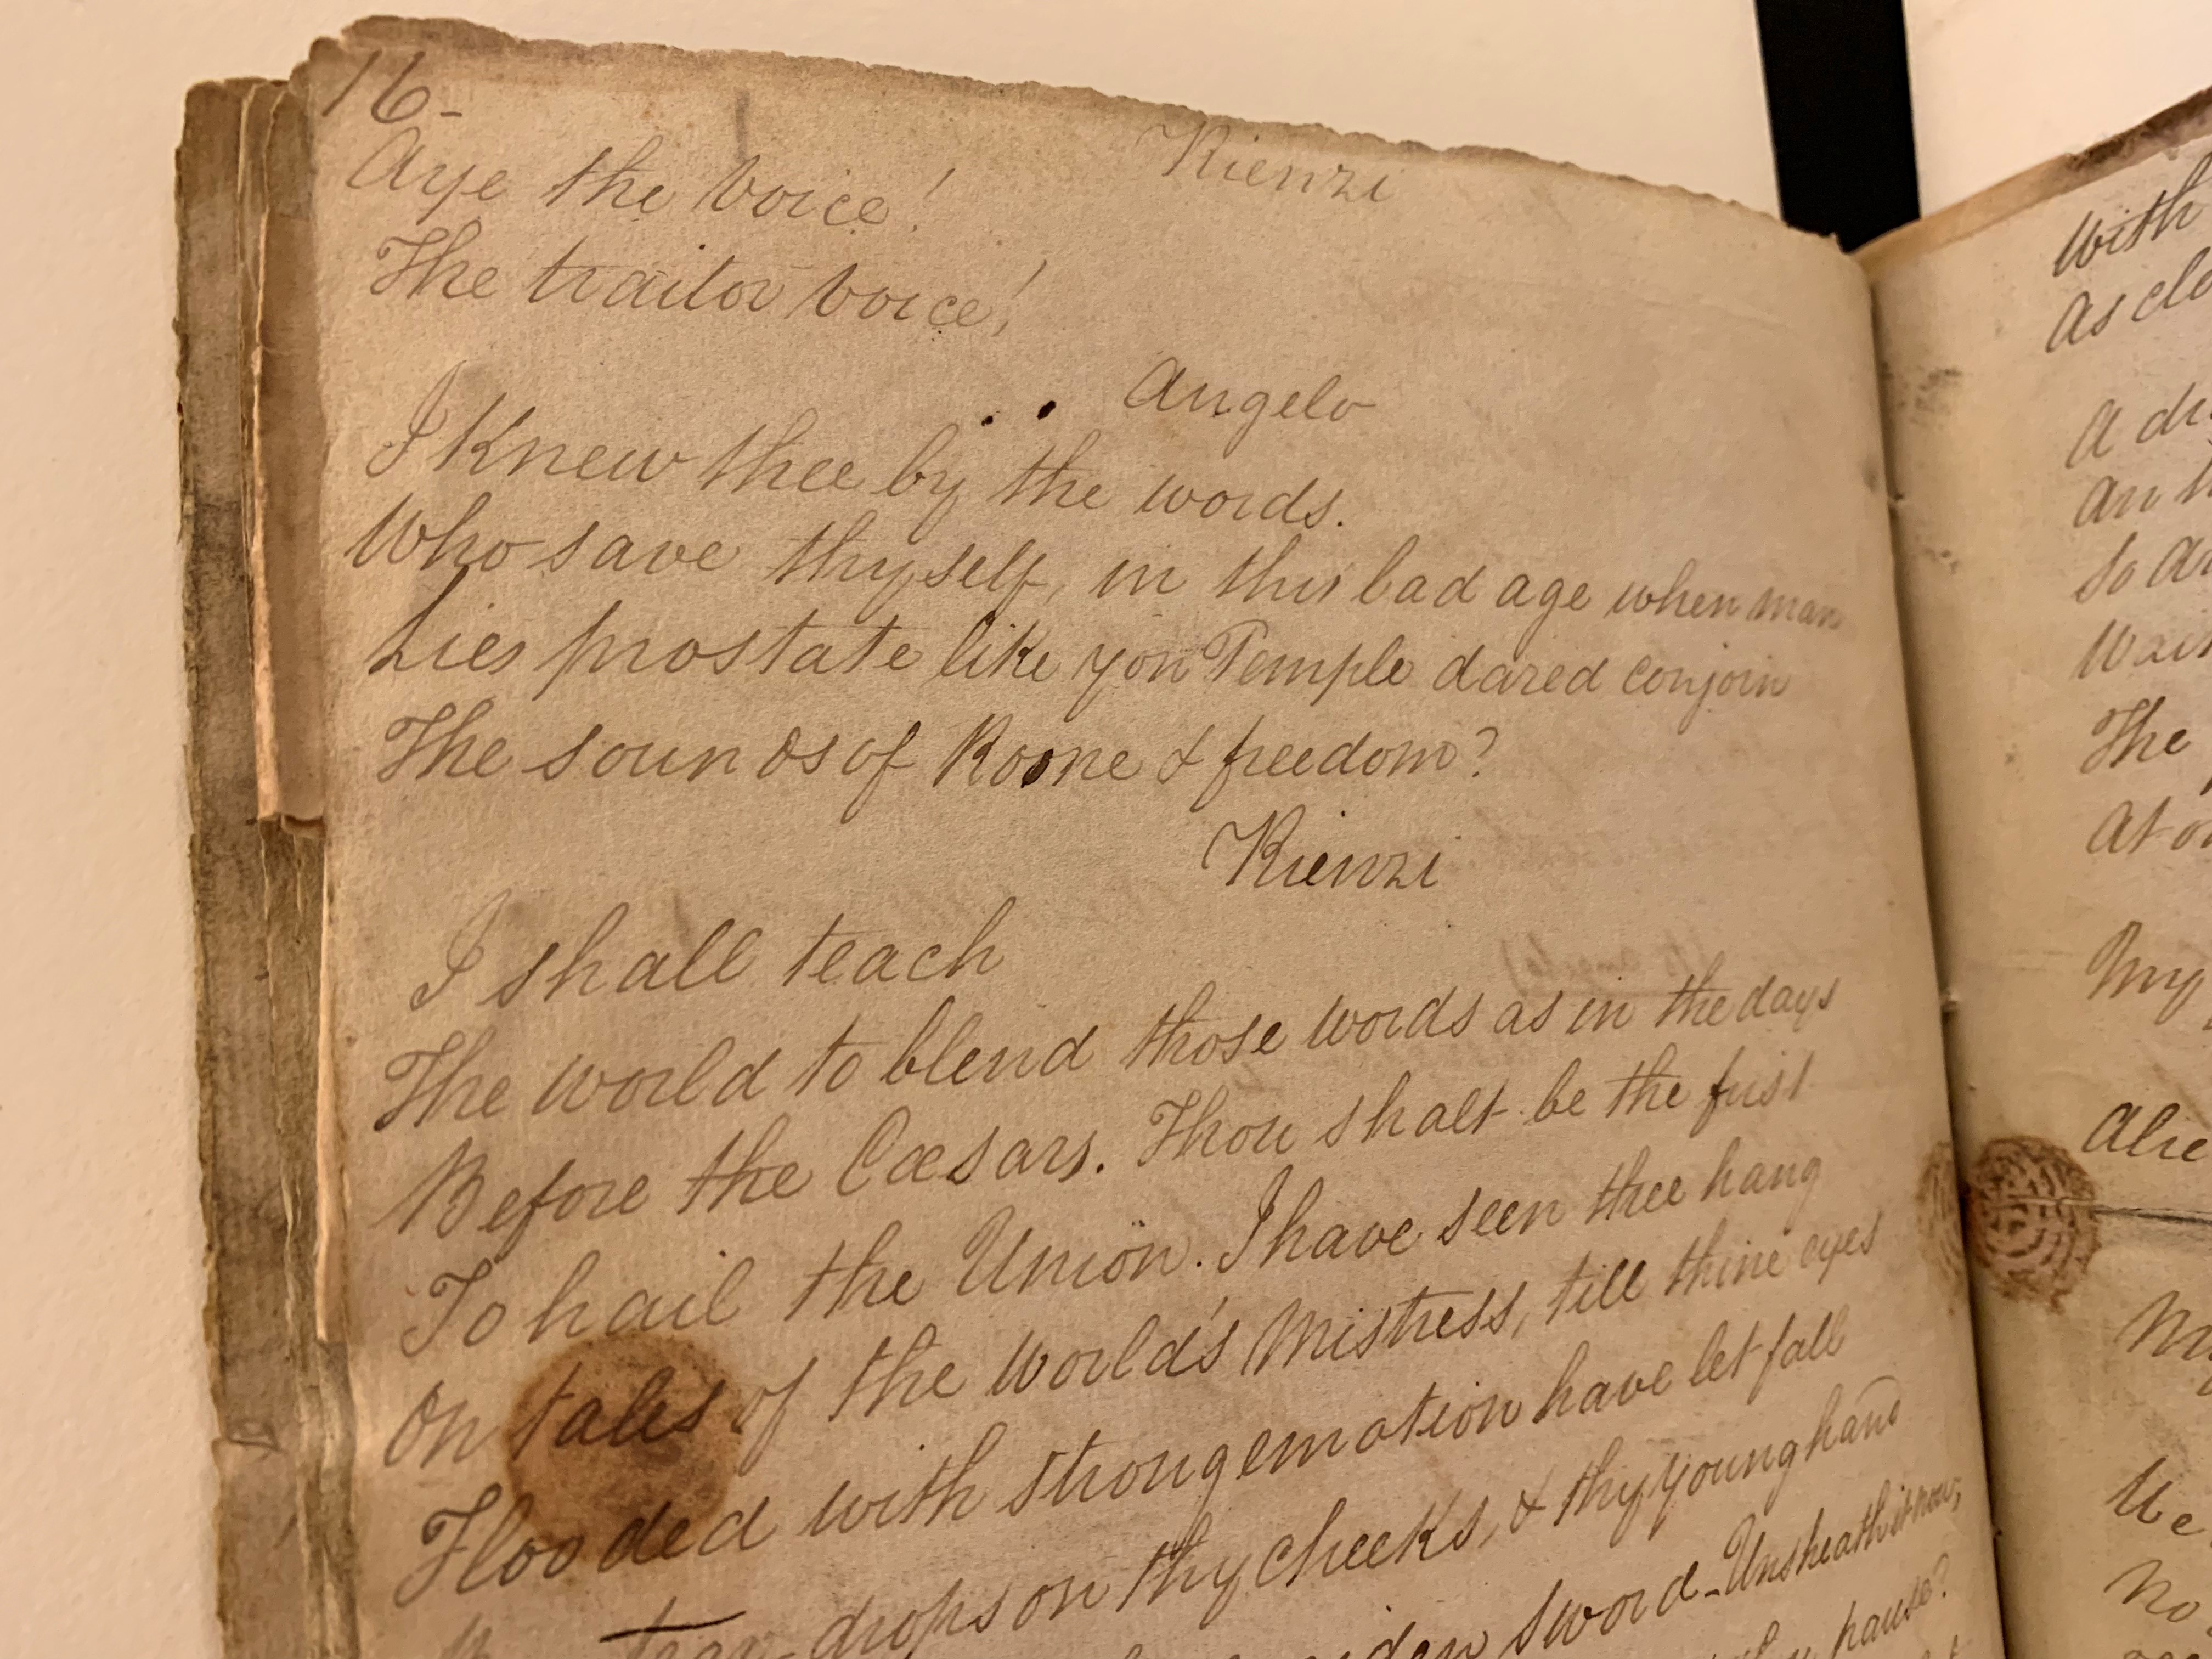 16-
Rienzi
Aye the voice!
The traitor voice!
Angelo
I knew thee by the words.
Who save thyself, in this bad age when man
Lies prostate like yon Temple dared conjoin
The sounds of Rome & freedom?
Rienzi
I shall teach
The world to blend those words as in the days
Before the Cæsars. Thou shalt be the first
To hail the Union. I have seen thee hang
On tales of the world's Mistress, till thine eyes
Flooded with strong emotion have let fall
tear-drops on thy cheeks, & thy young hand
sword-Unsheath it now,
pause?
With
As clo
A di
An h
So
The
At
My
Alie
No